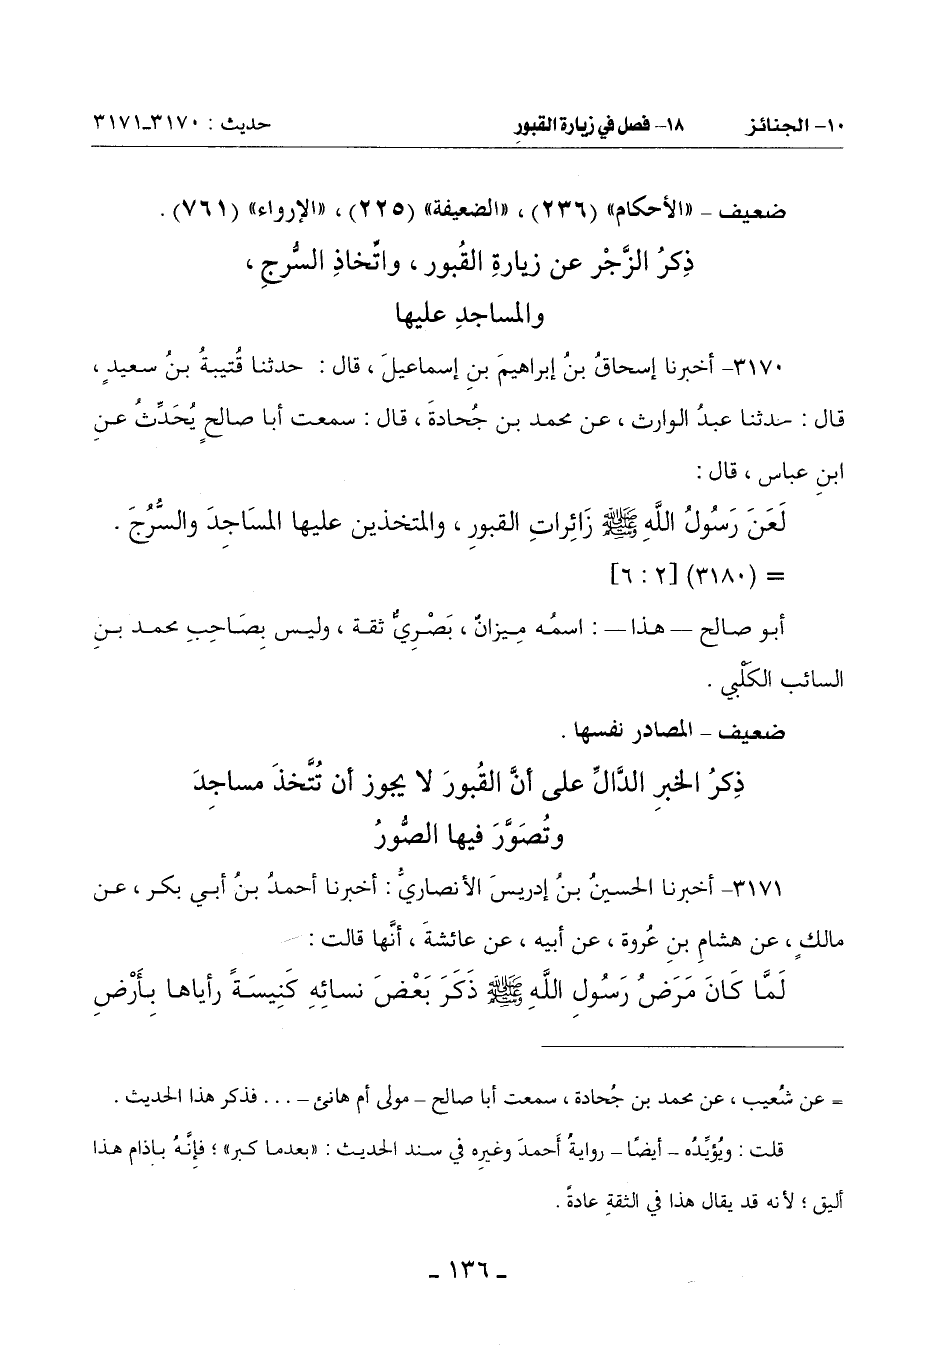 ١٠- الجنائز ١٨- فصل في زيارة القبور حديث : ٣١٧٠-٣١٧١
ضعيف - «الأحكام» (٢٣٦) ، «الضعيفة» (٢٢٥) ، «الإرواء» (٧٦١) .
ذِكرُ الزَّجْرِ عن زيارةِ القُبور ، واتِّخاذِ السُّرجِ ،
والمساجدِ عليها
٣١٧٠- أخبرنا إسحاقُ بنُ إبراهيمَ بنِ إسماعيلَ ، قال : حدثنا قُتيبةُ بنُ سعيدٍ ،
قال : حدثنا عبدُ الوارث ، عن محمد بن جُحادةَ ، قال : سمعت أبا صالحٍ يُحَدِّثُ عنِ
ابنِ عباس ، قال :
لَعَنَ رَسُولُ اللَّهِ ﷺ زَائِراتِ القبورِ ، والمتخذين عليها المسَاجِدَ والسُّرُجَ .
= (٣١٨٠) [٢ : ٦]
أبو صالح — هذا — : اسمُه مِيزانٌ ، بَصْرِيٌّ ثقة ، وليس بِصَاحِبِ محمد بنِ
السائب الكَلْبي .
ضعيف - المصادر نفسها .
ذِكرُ الخبرِ الدَّالِّ على أنَّ القُبورَ لا يجوز أن تُتَّخذَ مساجِدَ
وتُصَوَّرَ فيها الصُّورُ
٣١٧١- أخبرنا الحسينُ بنُ إدريسَ الأنصاريُّ : أخبرنا أحمدُ بنُ أبي بكر ، عن
مالكٍ ، عن هشامِ بنِ عُروة ، عن أبيه ، عن عائشةَ ، أنَّها قالت :
لَمَّا كَانَ مَرَضُ رَسُولِ اللَّهِ ﷺ ذَكَرَ بَعْضَ نسائِهِ كَنِيسَةً رأياها بِأَرْضِ
= عن شُعيب ، عن محمد بن جُحادة ، سمعت أبا صالح - مولى أم هانئ - . . . فذكر هذا الحديث .
قلت : ويُؤيِّدُه - أيضًا - روايةُ أحمدَ وغيرِه في سند الحديث : «بعدما كبر» ؛ فإنَّهُ باذام هذا
أليق ؛ لأنه قد يقال هذا في الثقةِ عادةً .
- ١٣٦ -